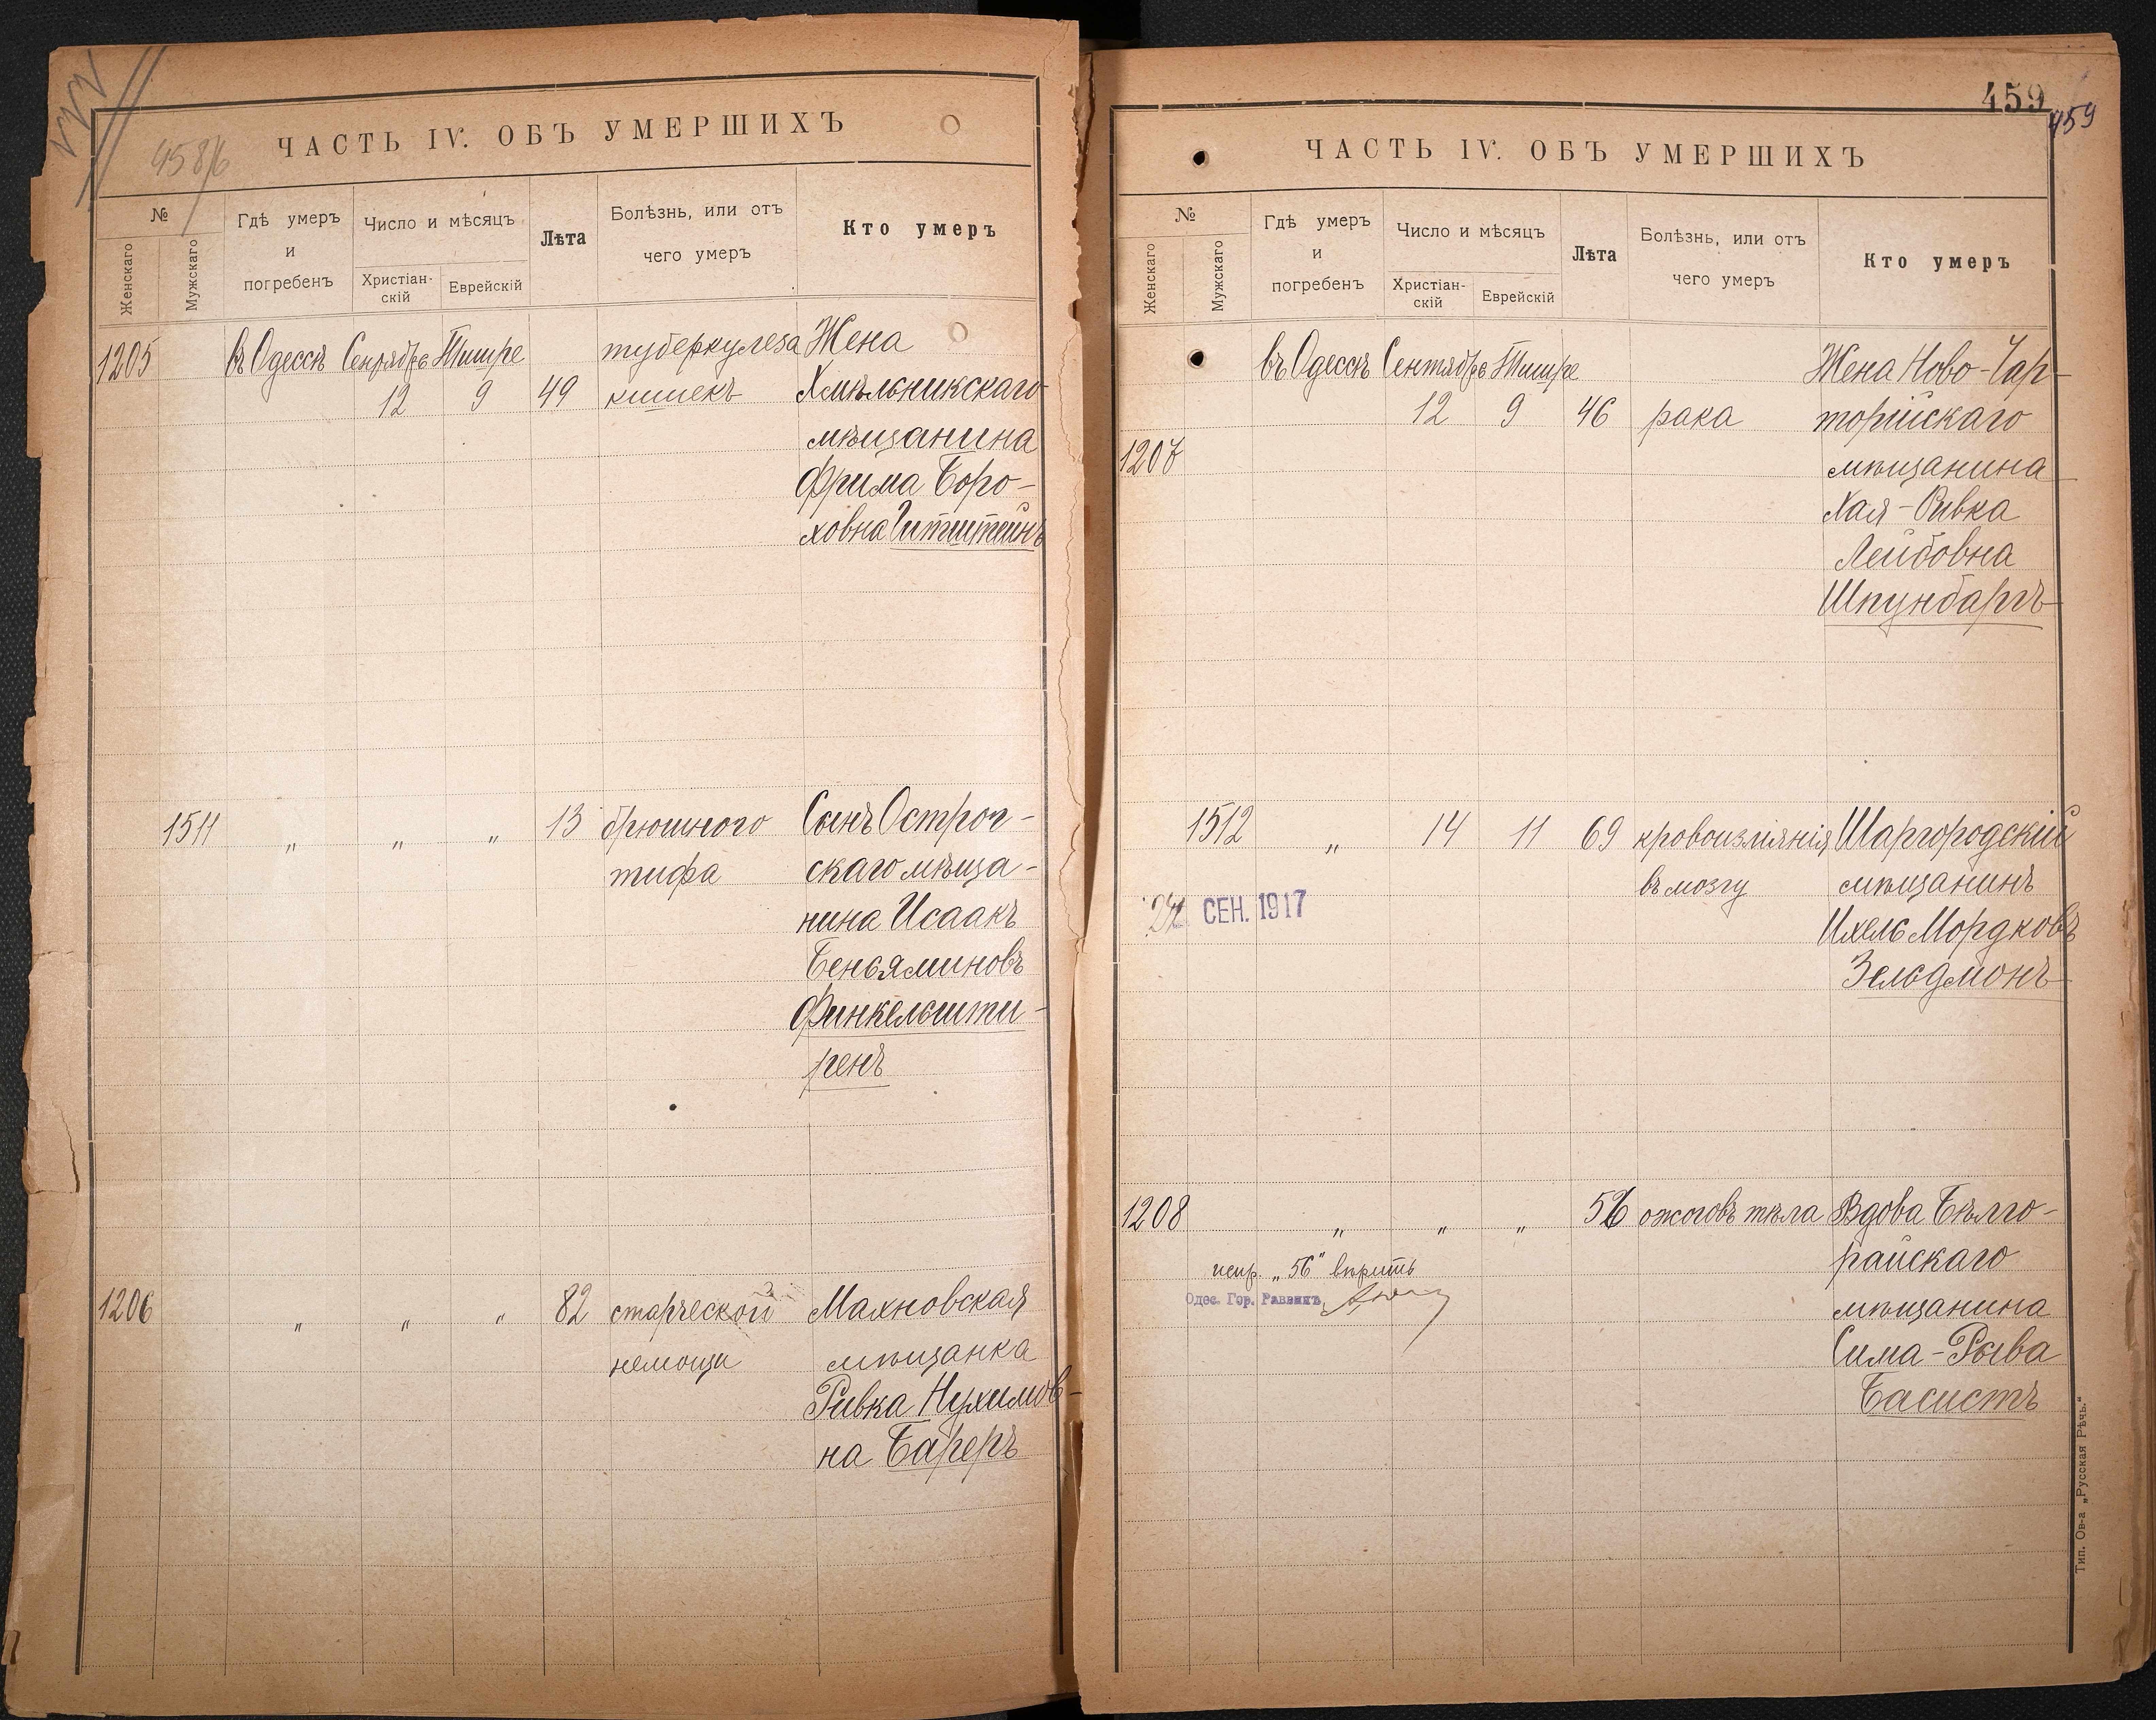 458/б
ЧАСТЬ IV. ОБЪ УМЕРШИХЪ
№
Женскаго
Мужскаго
Гдѣ умеръ и погребенъ
Число и мѣсяцъ
Христіан-
скій
Еврейскій
Лѣта
Болѣзнь, или отъ
чего умеръ
Кто умеръ
1205 въ Одессѣ Сентябрь Тишре туберкулеза Жена
12 9 49 кишекъ Хмѣльникскаго
мѣщанина
Фрима Боро-
ховна Гитштейнъ
1511 " " " 13 брюшного Сынъ Острог-
тифа скаго мѣща-
нина Исаакъ
Беньяминовъ
Финкельшти-
ренъ
1206 " " " 82 старческой Махновская
немощи мѣщанка
Ривка Нухимов-
на Бареръ
459
459
ЧАСТЬ IV. ОБЪ УМЕРШИХЪ
№
Женскаго
Мужскаго
Гдѣ умеръ и погребенъ
Число и мѣсяцъ
Христіан-
скій
Еврейскій
Лѣта
Болѣзнь, или отъ
чего умеръ
Кто умеръ
въ Одессѣ Сентябрь Тишре Жена Ново-Чар-
12 9 46 рака торійскаго
1207 мѣщанина
Хая-Ривка
Лейбовна
Шпунбаргъ
1512 " 14 11 69 кровоизліянія Шаргородскій
въ мозгу мѣщанинъ
24 СЕН. 1917
Ихель Мордковъ
Зельдмонъ
1208 " " " 56 ожоговъ тѣла Вдова Бѣлго-
райскаго
испр. „56" вѣрить
Одес. Гор. Раввинъ
мѣщанина
Сима-Рыва
Басистъ
Тип. Ов-а „Русская Рѣчь."